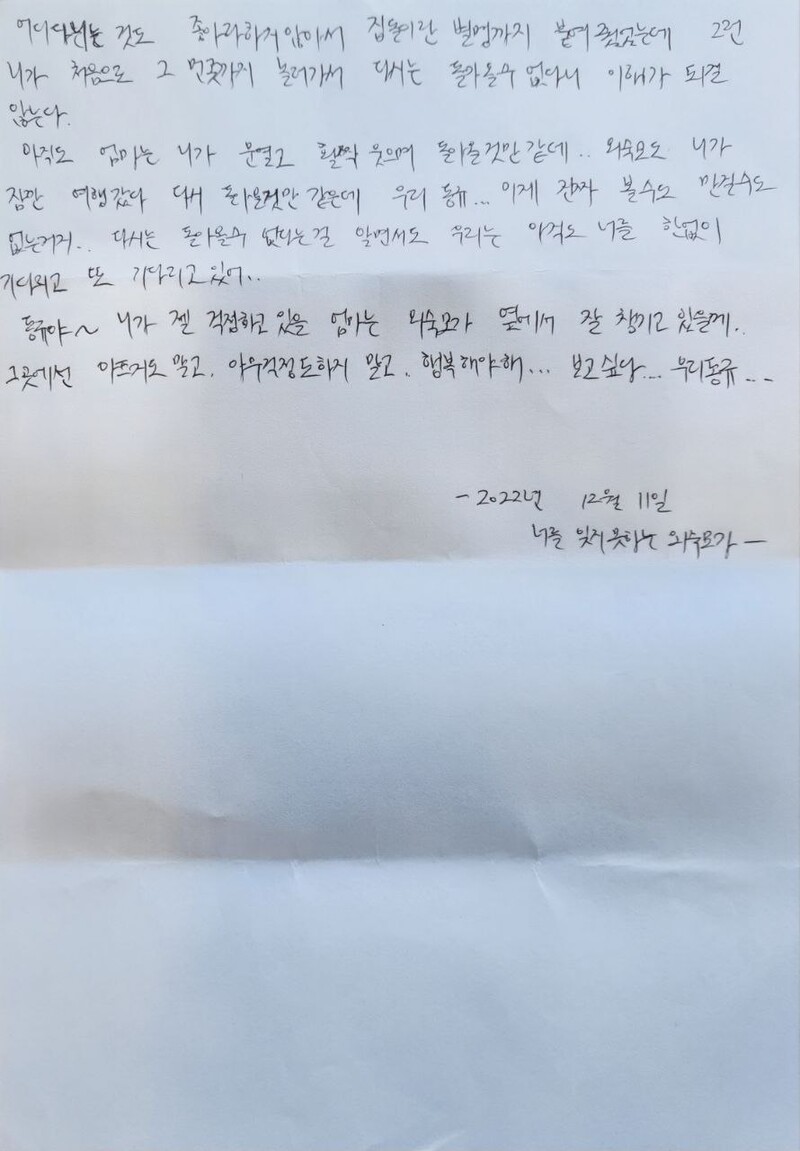 어디다니는 것도 좋아라하지않아서 집돌이란 별명까지 붙여줬었는데 그런
니가 처음으로 그 먼곳까지 놀러가서 다시는 돌아올수 없다니 이해가 되질
않는다.
아직도 엄마는 니가 문열고 활짝 웃으며 돌아올것만 같데.. 외숙모도 니가
잠깐 여행갔다 다시 돌아올것만 같은데 우리 동규... 이제 진짜 볼수도 만질수도
없는거지.. 다시는 돌아올수 없다는걸 알면서도 우리는 아직도 너를 한없이
기다리고 또 기다리고있어..
동규야~ 니가 젤 걱정하고 있을 엄마는 외숙모가 옆에서 잘 챙기고 있을께..
그곳에선 아프지도 말고, 아무걱정도하지 말고, 행복해야해... 보고싶당... 우리동규...
-2022년 12월 11일
너를 잊지못하는 외숙모가-